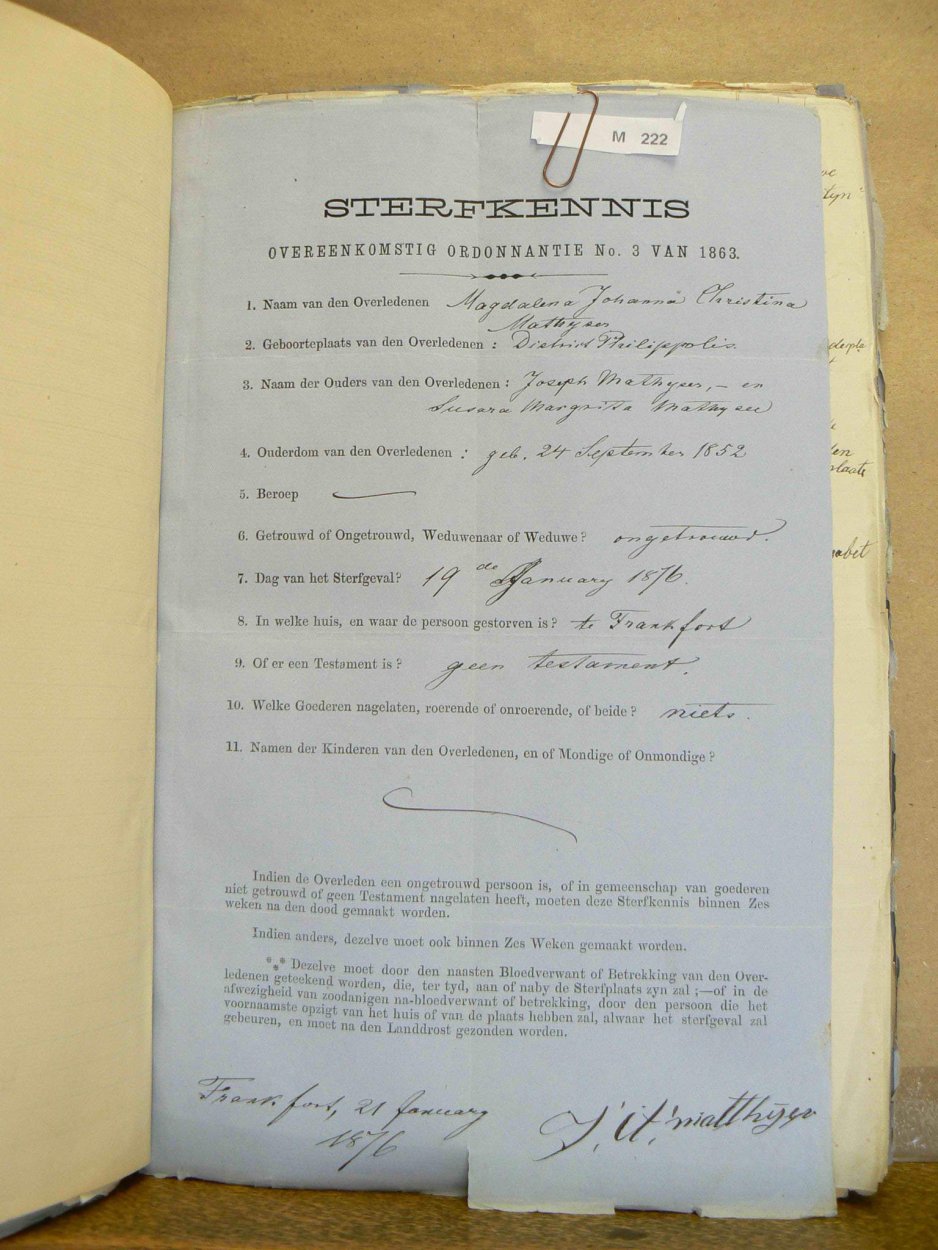 M 222
STERFKENNIS
OVEREENKOMSTIG ORDONNANTIE No. 3 VAN 1863.
1. Naam van den Overledenen Magdalena Johanna Christina
Mathyser
2. Geboorteplaats van den Overledenen : District Philippolis.
3. Naam der Ouders van den Overledenen : Joseph Mathyser, – en
Susara Margrita Mathysee
4. Ouderdom van den Overledenen : geb. 24 September 1852
5. Beroep
6. Getrouwd of Ongetrouwd, Weduwenaar of Weduwe? ongetrouwd.
7. Dag van het Sterfgeval? 19 de January 1876.
8. In welke huis, en waar de persoon gestorven is? te Frankfort
9. Of er een Testament is? geen testament.
10. Welke Goederen nagelaten, roerende of onroerende, of beide? niets.
11. Namen der Kinderen van den Overledenen, en of Mondige of Onmondige?
Indien de Overleden een ongetrouwd persoon is, of in gemeenschap van goederen
niet getrouwd of geen Testament nagelaten heeft, moeten deze Sterfkennis binnen Zes
weken na den dood gemaakt worden.
Indien anders, dezelve moet ook binnen Zes Weken gemaakt worden.
*** Dezelve moet door den naasten Bloedverwant of Betrekking van den Over-
ledenen geteekend worden, die, ter tyd, aan of naby de Sterfplaats zyn zal ;—of in de
afwezigheid van zoodanigen na-bloedverwant of betrekking, door den persoon die het
voornaamste opzigt van het huis of van de plaats hebben zal, alwaar het sterfgeval zal
gebeuren, en moet na den Landdrost gezonden worden.
Frankfort, 21 January
1876
matthyser